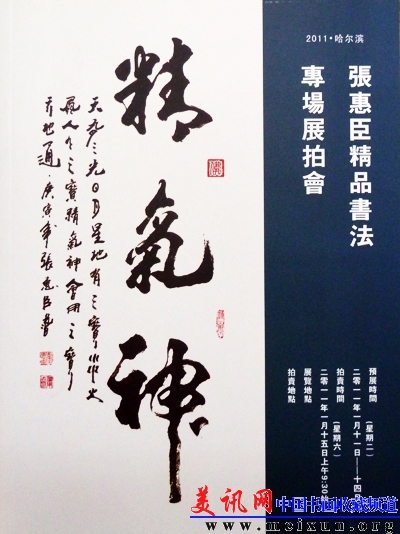 2011·哈尔滨
張惠臣精品書法
專場展拍會
精氣神
天有三寶日月星地有三寶水火
風人有三寶精氣神會用三寶
天地通·庚寅年張惠臣書
預展時間
(星期二)
二零一一年一月十一日——十四日
拍賣時間
(星期六)
二零一一年一月十五日上午9:30
展覽地點
拍賣地點
美讯网 中国书画收藏频道
www.meixun.org